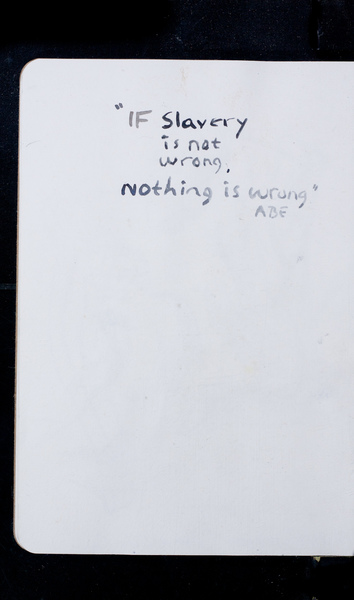 "IF Slavery
is not
wrong,
Nothing is wrong"
ABE